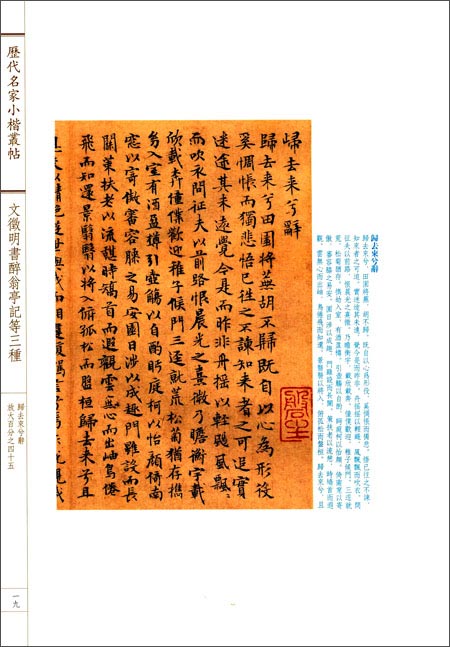 歸去來兮辭
歸去來兮,田園將蕪,胡不歸。既自以心爲形役,奚惆悵而獨悲。悟已往之不諫,
知來者之可追。實迷途其未遠,覺今是而昨非。舟搖搖以輕颺,風飄飄而吹衣。問
征夫以前路,恨晨光之熹微。乃瞻衡宇,載欣載奔。僮僕歡迎,稚子候門。三逕就
荒,松菊猶存。攜幼入室,有酒盈罇。引壺觴以自酌,眄庭柯以怡顏。倚南窓以寄
傲,審容膝之易安。園日涉以成趣,門雖設而長關。策扶老以流憩,時矯首而遐
觀。雲無心而出岫,鳥倦飛而知還。景翳翳以將入,撫孤松而盤桓。歸去來兮,且
歸去来兮辭
歸去来兮田園將蕪胡不歸既自以心為形役
奚惆悵而獨悲悟已往之不諫知来者之可追實
迷途其未遠覺今是而昨非舟搖以輕颺風飄
而吹衣問征夫以前路恨晨光之熹微乃瞻衡宇載
欣載奔僮僕歡迎稚子候門三逕就荒松菊猶存攜
幼入室有酒盈罇引壺觴以自酌眄庭柯以怡顏倚南
窓以寄傲審容膝之易安園日涉以成趣門雖設而長
關策扶老以流憩時矯首而遐觀雲無心而出岫鳥倦
飛而知還景翳以將入撫孤松而盤桓歸去来兮且
歷代名家小楷叢帖
文徵明書醉翁亭記等三種
歸去來兮辭
放大百分之四十五
一九